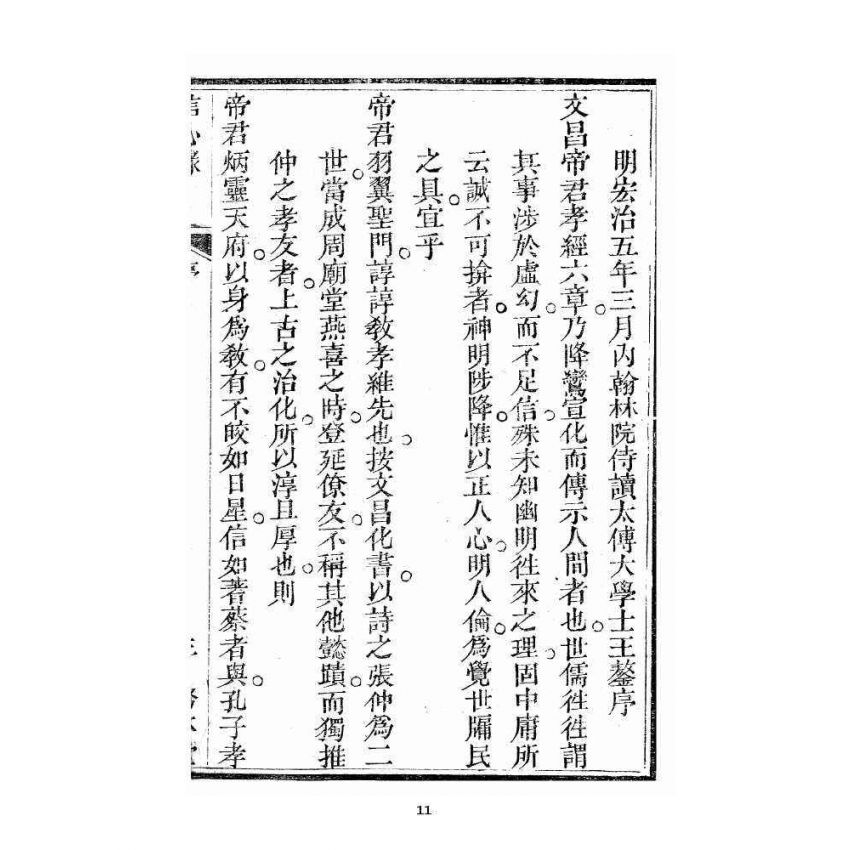 明宏治五年三月內翰林院侍讀太傅大學士王鏊序
文昌帝君孝經六章。乃降鸞宣化而傳示人間者也。世儒徃徃謂
其事涉於虛幻。而不足信。殊未知幽明徃來之理。固中庸所
云誠不可揜者。神明陟降。惟以正人心。明人倫。為覺世牖民
之具。宜乎
帝君羽翼聖門。諄諄敎孝維先也。按文昌化書。以詩之張仲為二
世。當成周廟堂燕喜之時。登延僚友。不稱其他懿蹟。而獨推
仲之孝友者。上古之治化。所以淳且厚也。則
帝君炳靈天府。以身為敎。有不皎如日星。信如蓍蔡者與。孔子孝
序
11